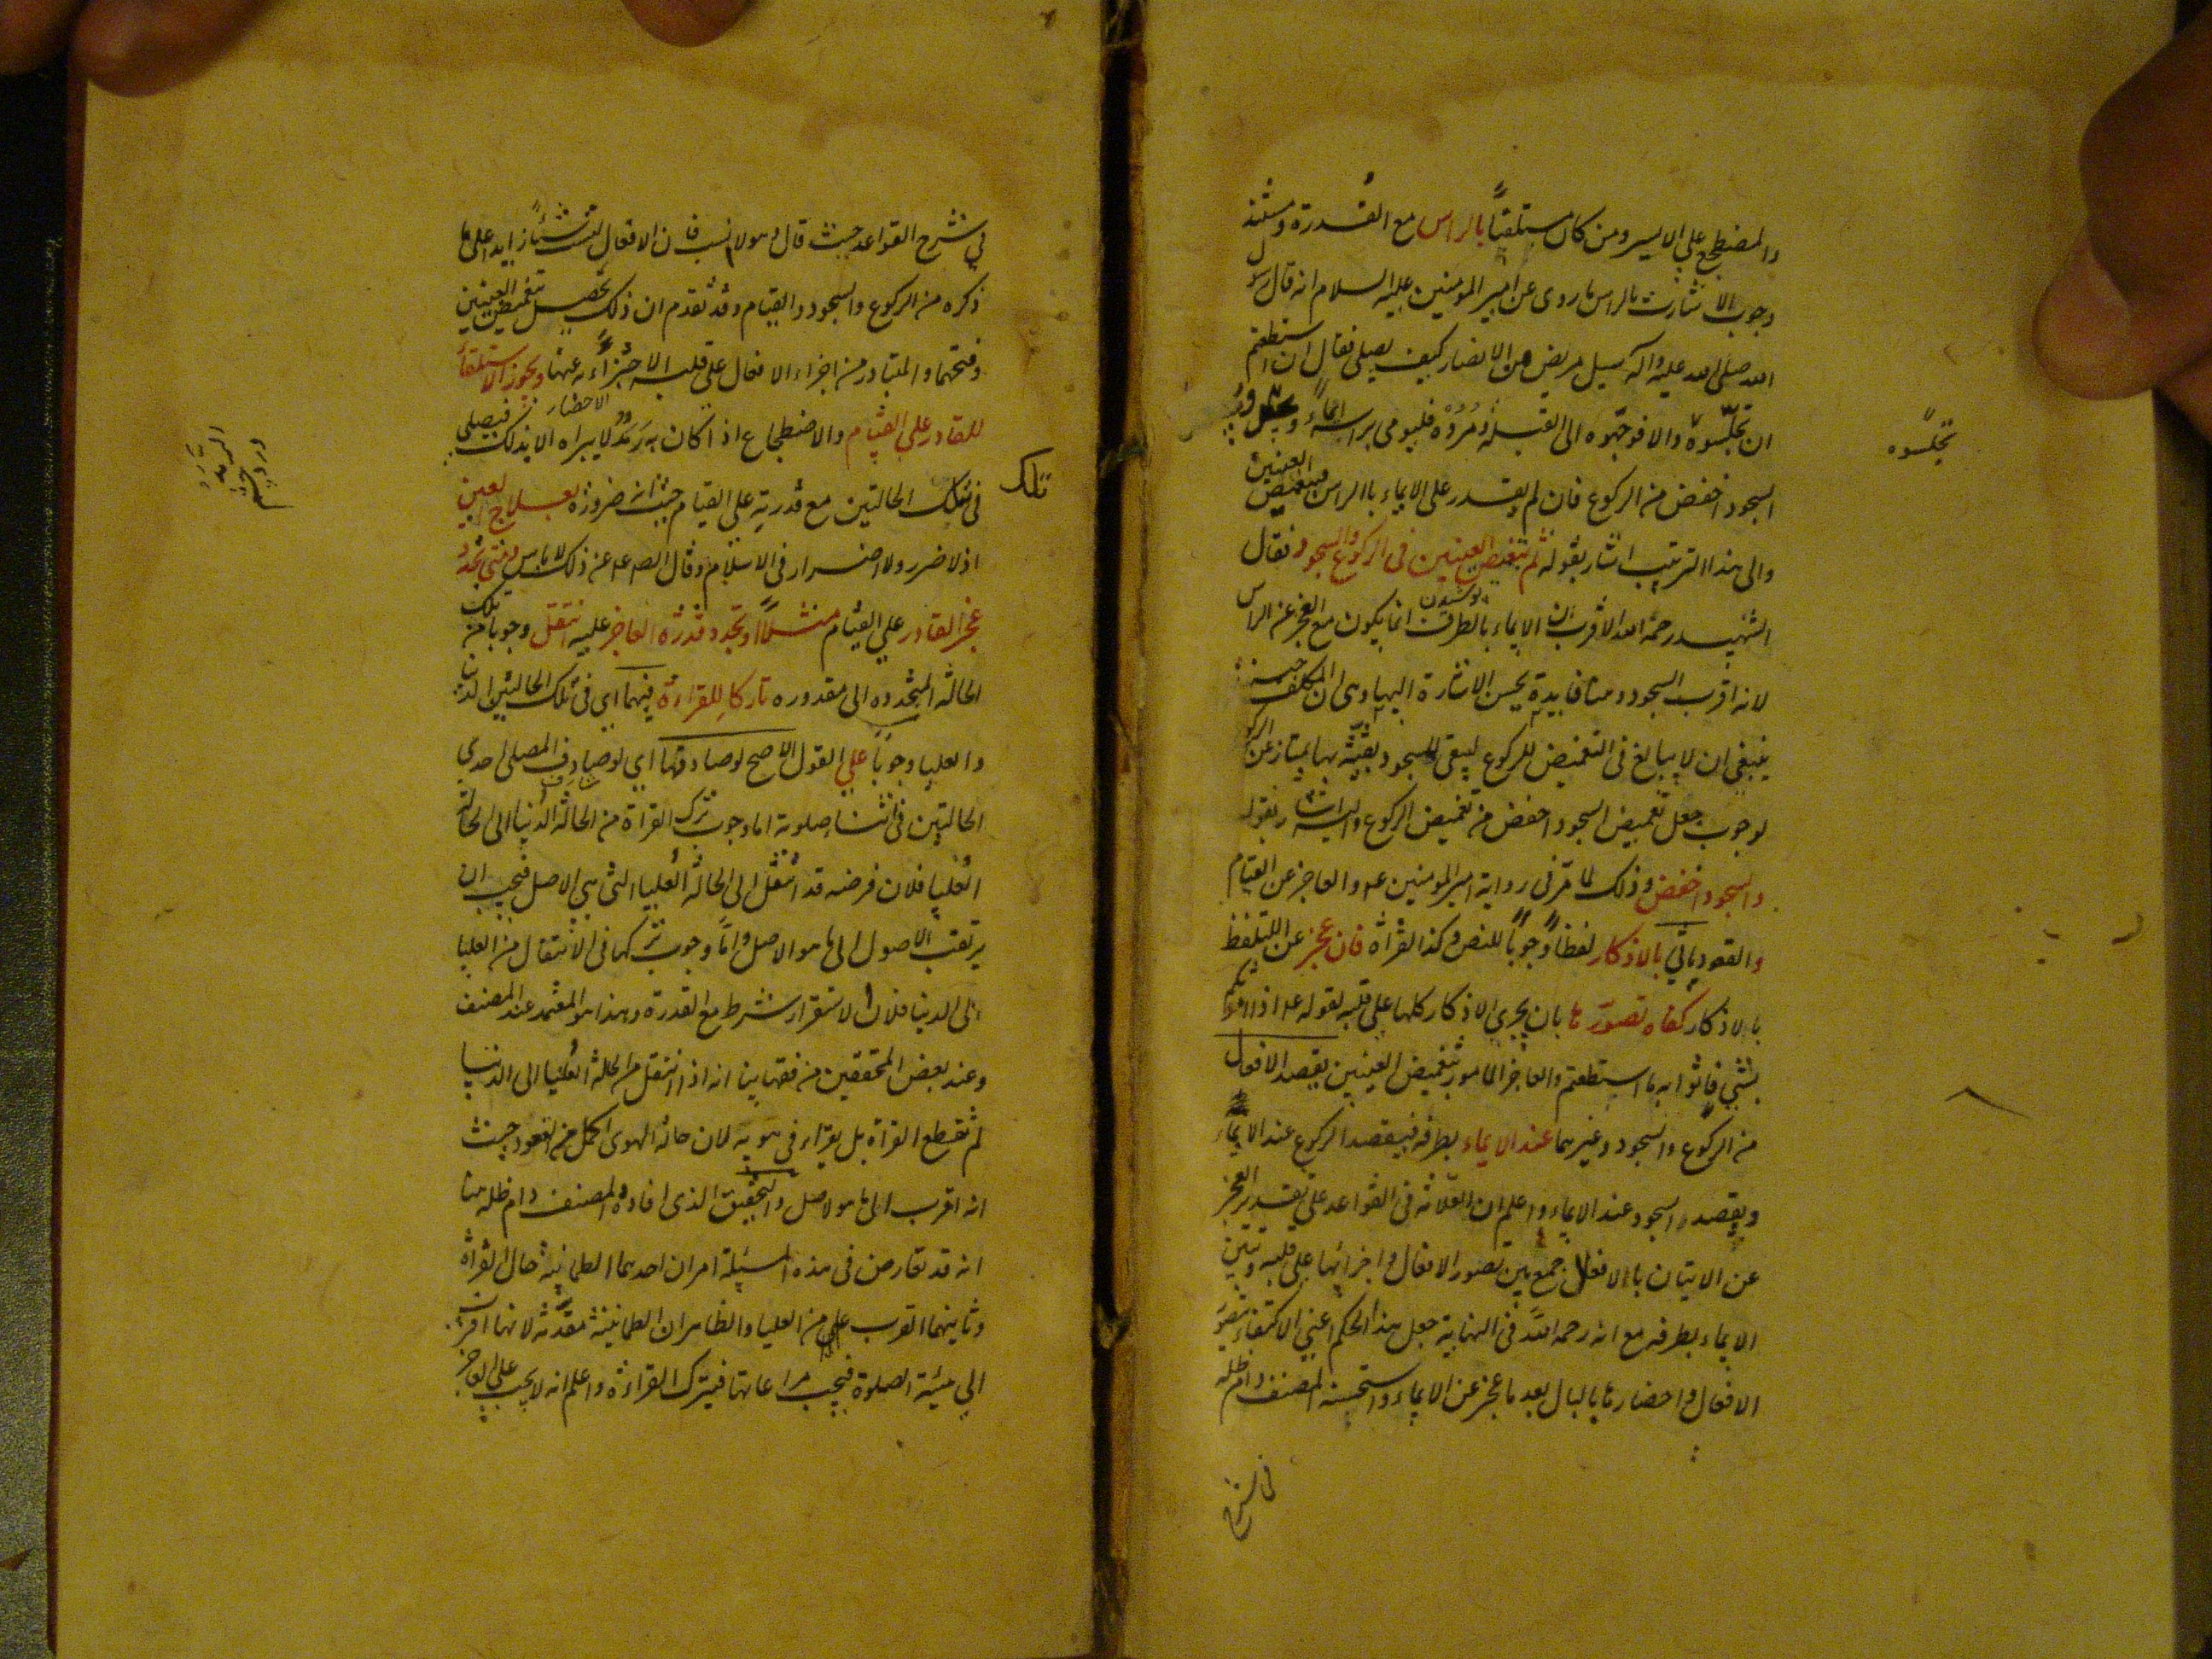 والمضطجع على الايسر ومن كان مستلقياً بالراس مع القدرة ومستند
وجوب الاشارت بالراس ما روى عن امير المومنين عليه السلام انه قال رسول
الله صلى الله عليه وآله سيل مريض من الانصار كيف يصلى فقال ان استطعتم
ان تجلّسوه والا فوجّهوه الى القبلة ومُرُوْه فليومى براسه ايماءً ويجعل
السجود اخفض من الركوع فان لم يقدر على الايماء بالراس فبتغميض العينين
والى هذا الترتيب اشار بقوله ثم بتغميض العينين فى الركوع والسجود فقال
الشهيد رحمة الله الاقرب ان الايماء بالطرف انما يكون مع العجز عن الراس
لانه اقرب السجود ومنا فايدة يحسن الاشارة اليها وهى ان المكلف حينئذ
ينبغى ان لا يبالغ فى التغميض للركوع ليبقى للسجود بقيّة بها يمتاز عن الركوع
لوجوب جعل تغميض السجود اخفض من تغميض الركوع واليه اشار بقوله
والسجود اخفض وذلك لما مرّ فى رواية امير المومنين عم والعاجز عن القيام
والقعود ياتي بالاذكار لفظاً وجوباً للنص وكذا القراة فان عجز عن التلفظ
بالاذكار كفاه تصوّرها بان يجرى الاذكار كلها على قلبه لقوله عم اذا امرتكم
بشئي فاتوا به ما استطعتم والعاجز المامور بتغميض العينين يقصد الافعال
من الركوع والسجود وغيرهما عند الايماء بطرفه فيقصد الركوع عند الايماء
ويقصد السجود عند الايماء واعلم ان العلامة فى القواعد على تقدير العجز
عن الاتيان بالافعال جمع بين تصور الافعال واجرائها على قلبه وبين
الايماء بطرفه مع انه رحمه الله فى النهاية جعل هذا الحكم اعني الاكتفاء بتصوّر
الافعال واحضارها بالبال بعد ما عجز عن الايماء واستحسنه المصنف دام ظله
فى شرح
تجلسوه
في شرح القواعد حيث قال وهو لا نسب فان الافعال ليست شئياً زايدا على ما
ذكره من الركوع والسجود والقيام وقد تقدم ان ذلك يحصل بتغميض العينين
وفتحهما والمتبادر من اجراء الافعال على قلبه الاجتزاء به عنها ويجوز الاستلقاء
الاحضار
للقادر على القيام والاضطجاع اذا كان به رَمَدٌ لا يبراه الا بذلك فيصلى
فى تلك الحالتين مع قدرته على القيام حيث انه ضرورة لعلاج العين
اذ لا ضرر ولا اضرار فى الاسلام وقال الصا عم عن ذلك لا باس ومتى تجدد
عجز القادر على القيام مثلاً او تجدد قدرة العاجز عليه انتقل وجوبا من تلك
الحالة المتجدده الى مقدوره تاركا للقراءة فيهما اي فى تلك الحالتين الدنيا
والعليا وجوباً على القول الاصح لو صادفتها اي لو صادف المصلى احدي
الحالتين فى اثنا صلوته اما وجوب ترك القراة من الحالة الدنيا الى الحالة
العُليا فلان فرضه قد انتقل الى الحالة العليا التى هى الاصل فيجب ان
يرتقب الاصول الى ما هو الاصل وامّا وجوب تركها فى الانتقال من العليا
الى الدنيا فلان الاستقرار شرط مع القدرة وهذا هو المعتمد عند المصنف
وعند بعض المحققين من فقهاينا انه اذا انتقل من الحالة العُليا الى الدنيا
لم تقطع القراة بل يقراء فى هويه لان حالة الهوى اكمل من القعود حيث
انه اقرب الى ما هو لاصل والتحقيق الذى افاده المصنف دام ظله هنا
انه قد تعارض فى هذه المسئيلة امران احدهما الطمانينة حال القراة
وثانيهما القرب من العليا والظاهر ان الطمانينة مقدّمة لانها اقرب
الى هيئة الصلوة فيجب مراعاتها فيترك القراءة واعلم انه لا يجب على العاجز
تلك
الرَّمَد
درد چشم